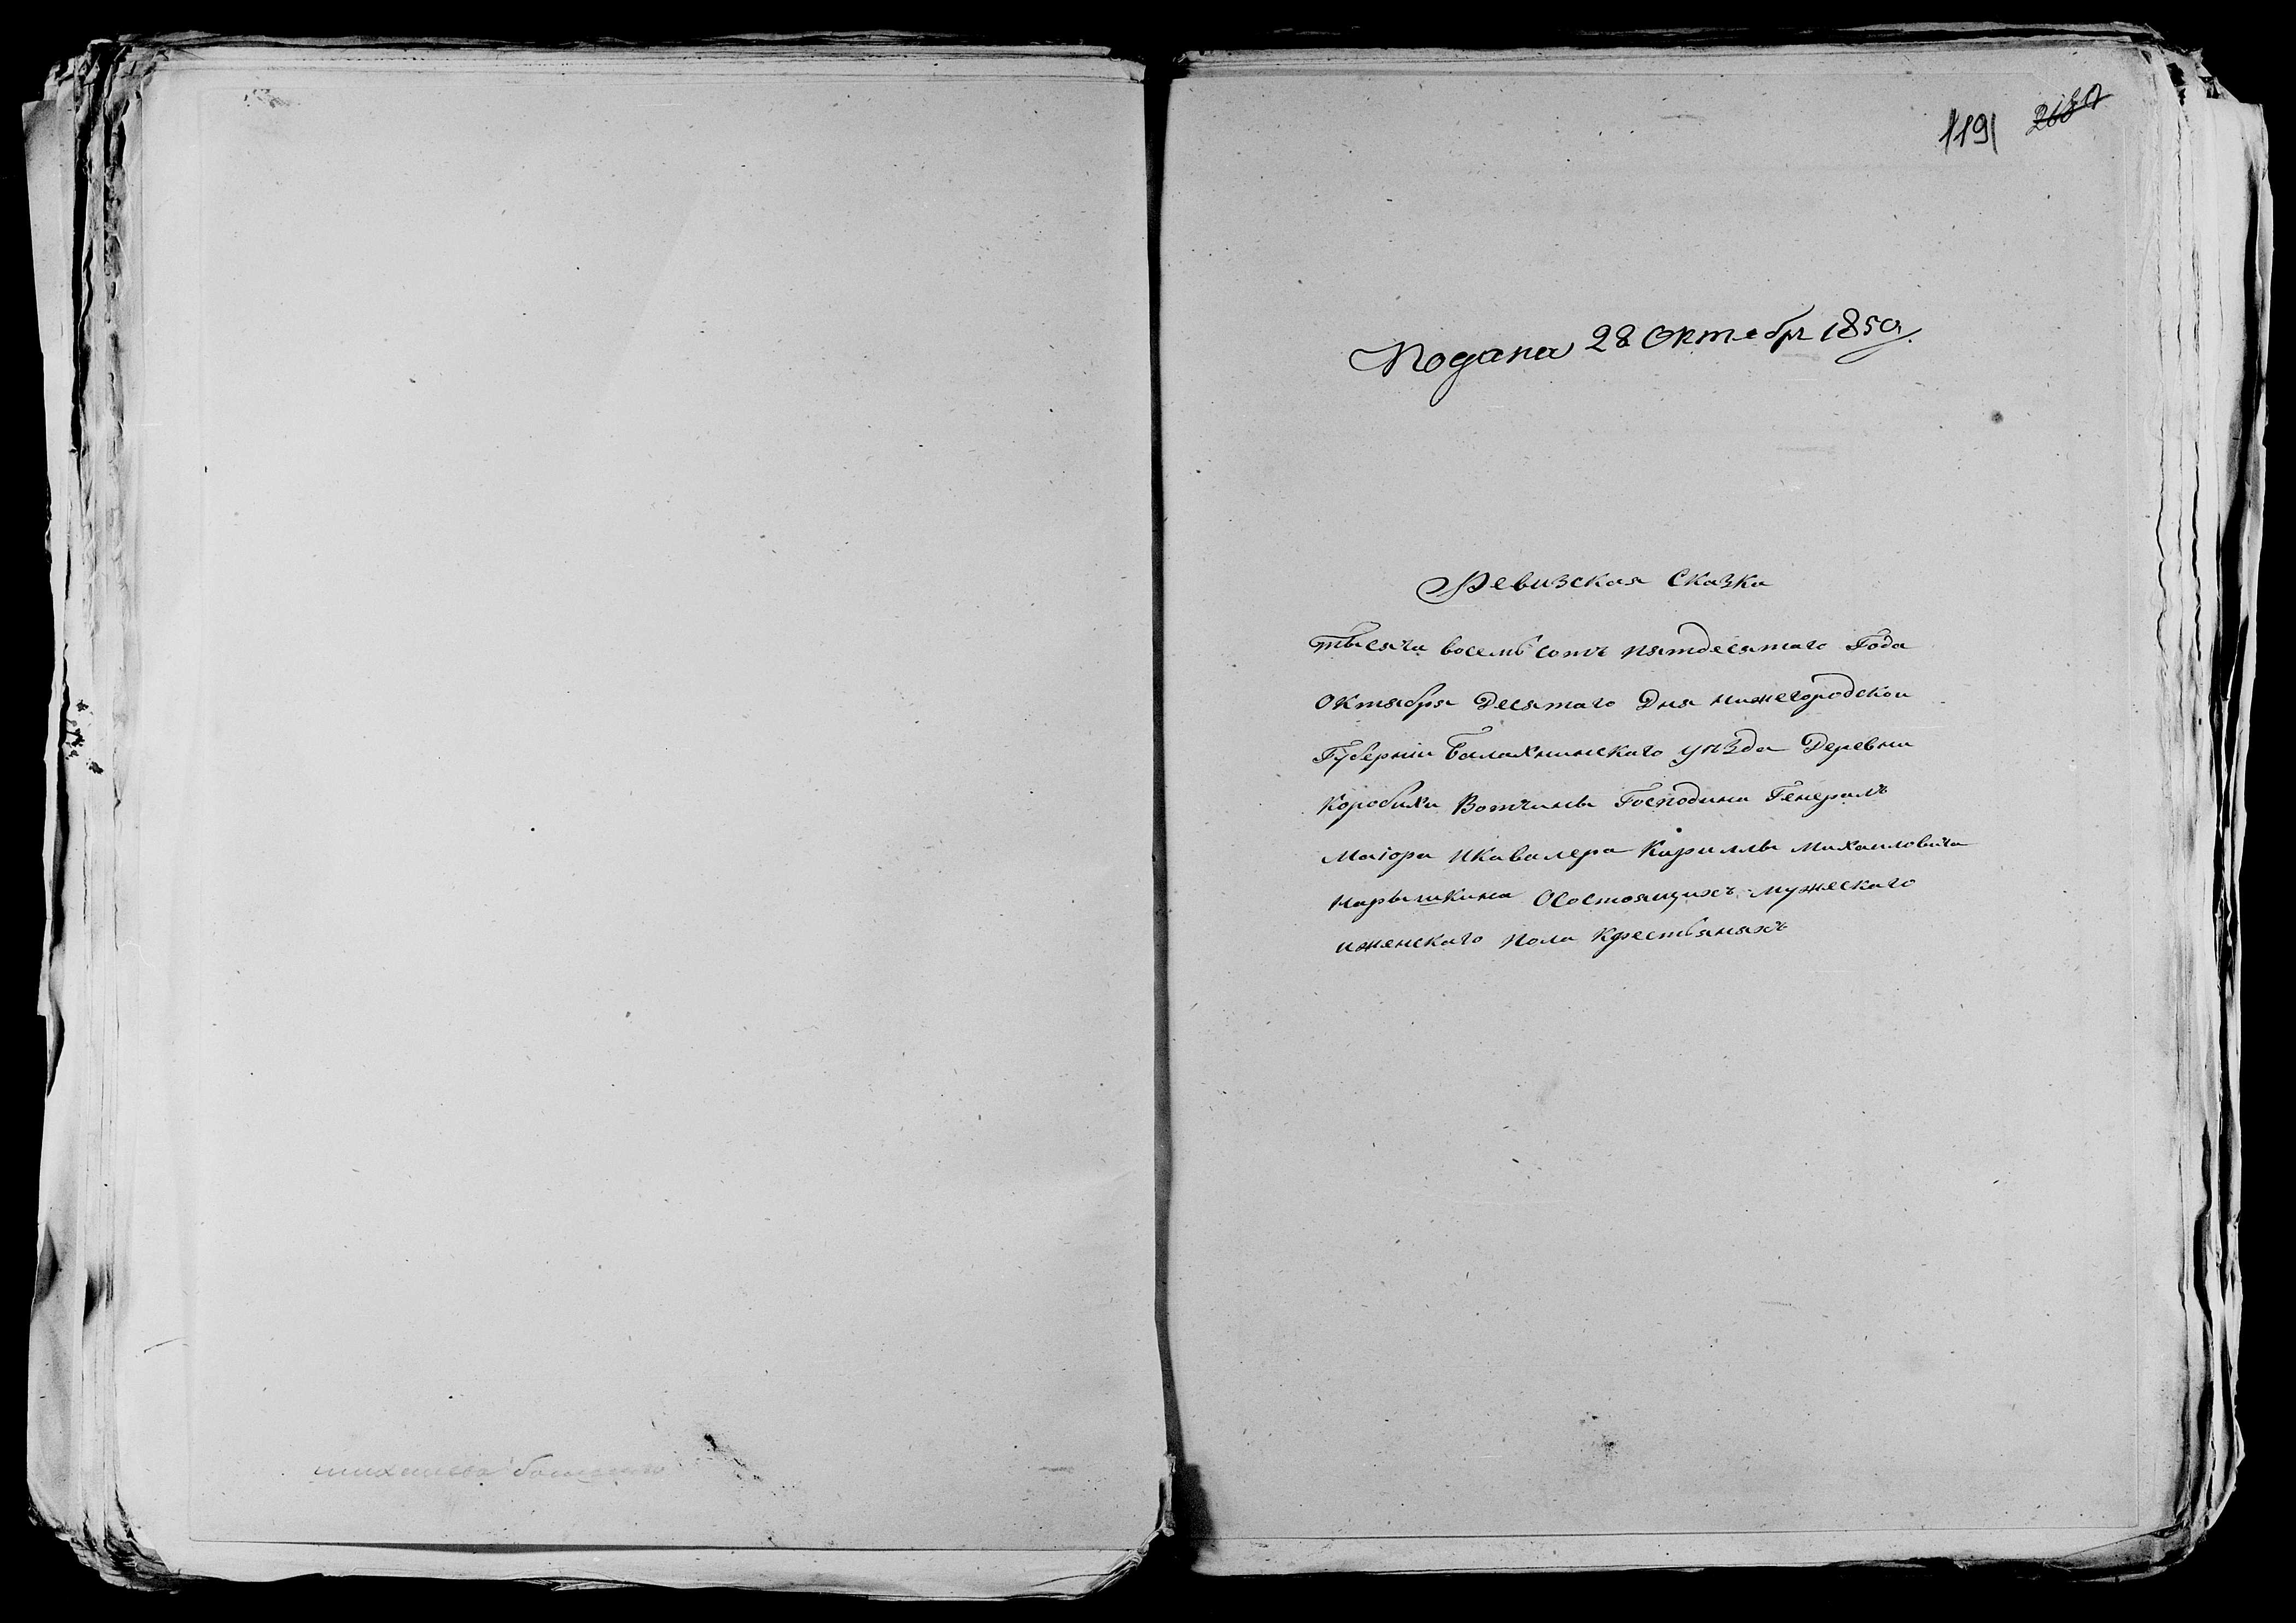 1191
Подана 28 Октебр 1850
Ревизская Сказка
тысяча восемьсотъ пятдесятаго Года
Октября Десятаго Дня нижегородской
Губерніи Балахнинскаго уѣзда Деревни
Коробихи Вотчины Господина Генералъ
Маіора Икавалера Кириллы Михаиловича
нарышкина Осостоящихъ мужескаго
иженскаго пола Крестьянахъ